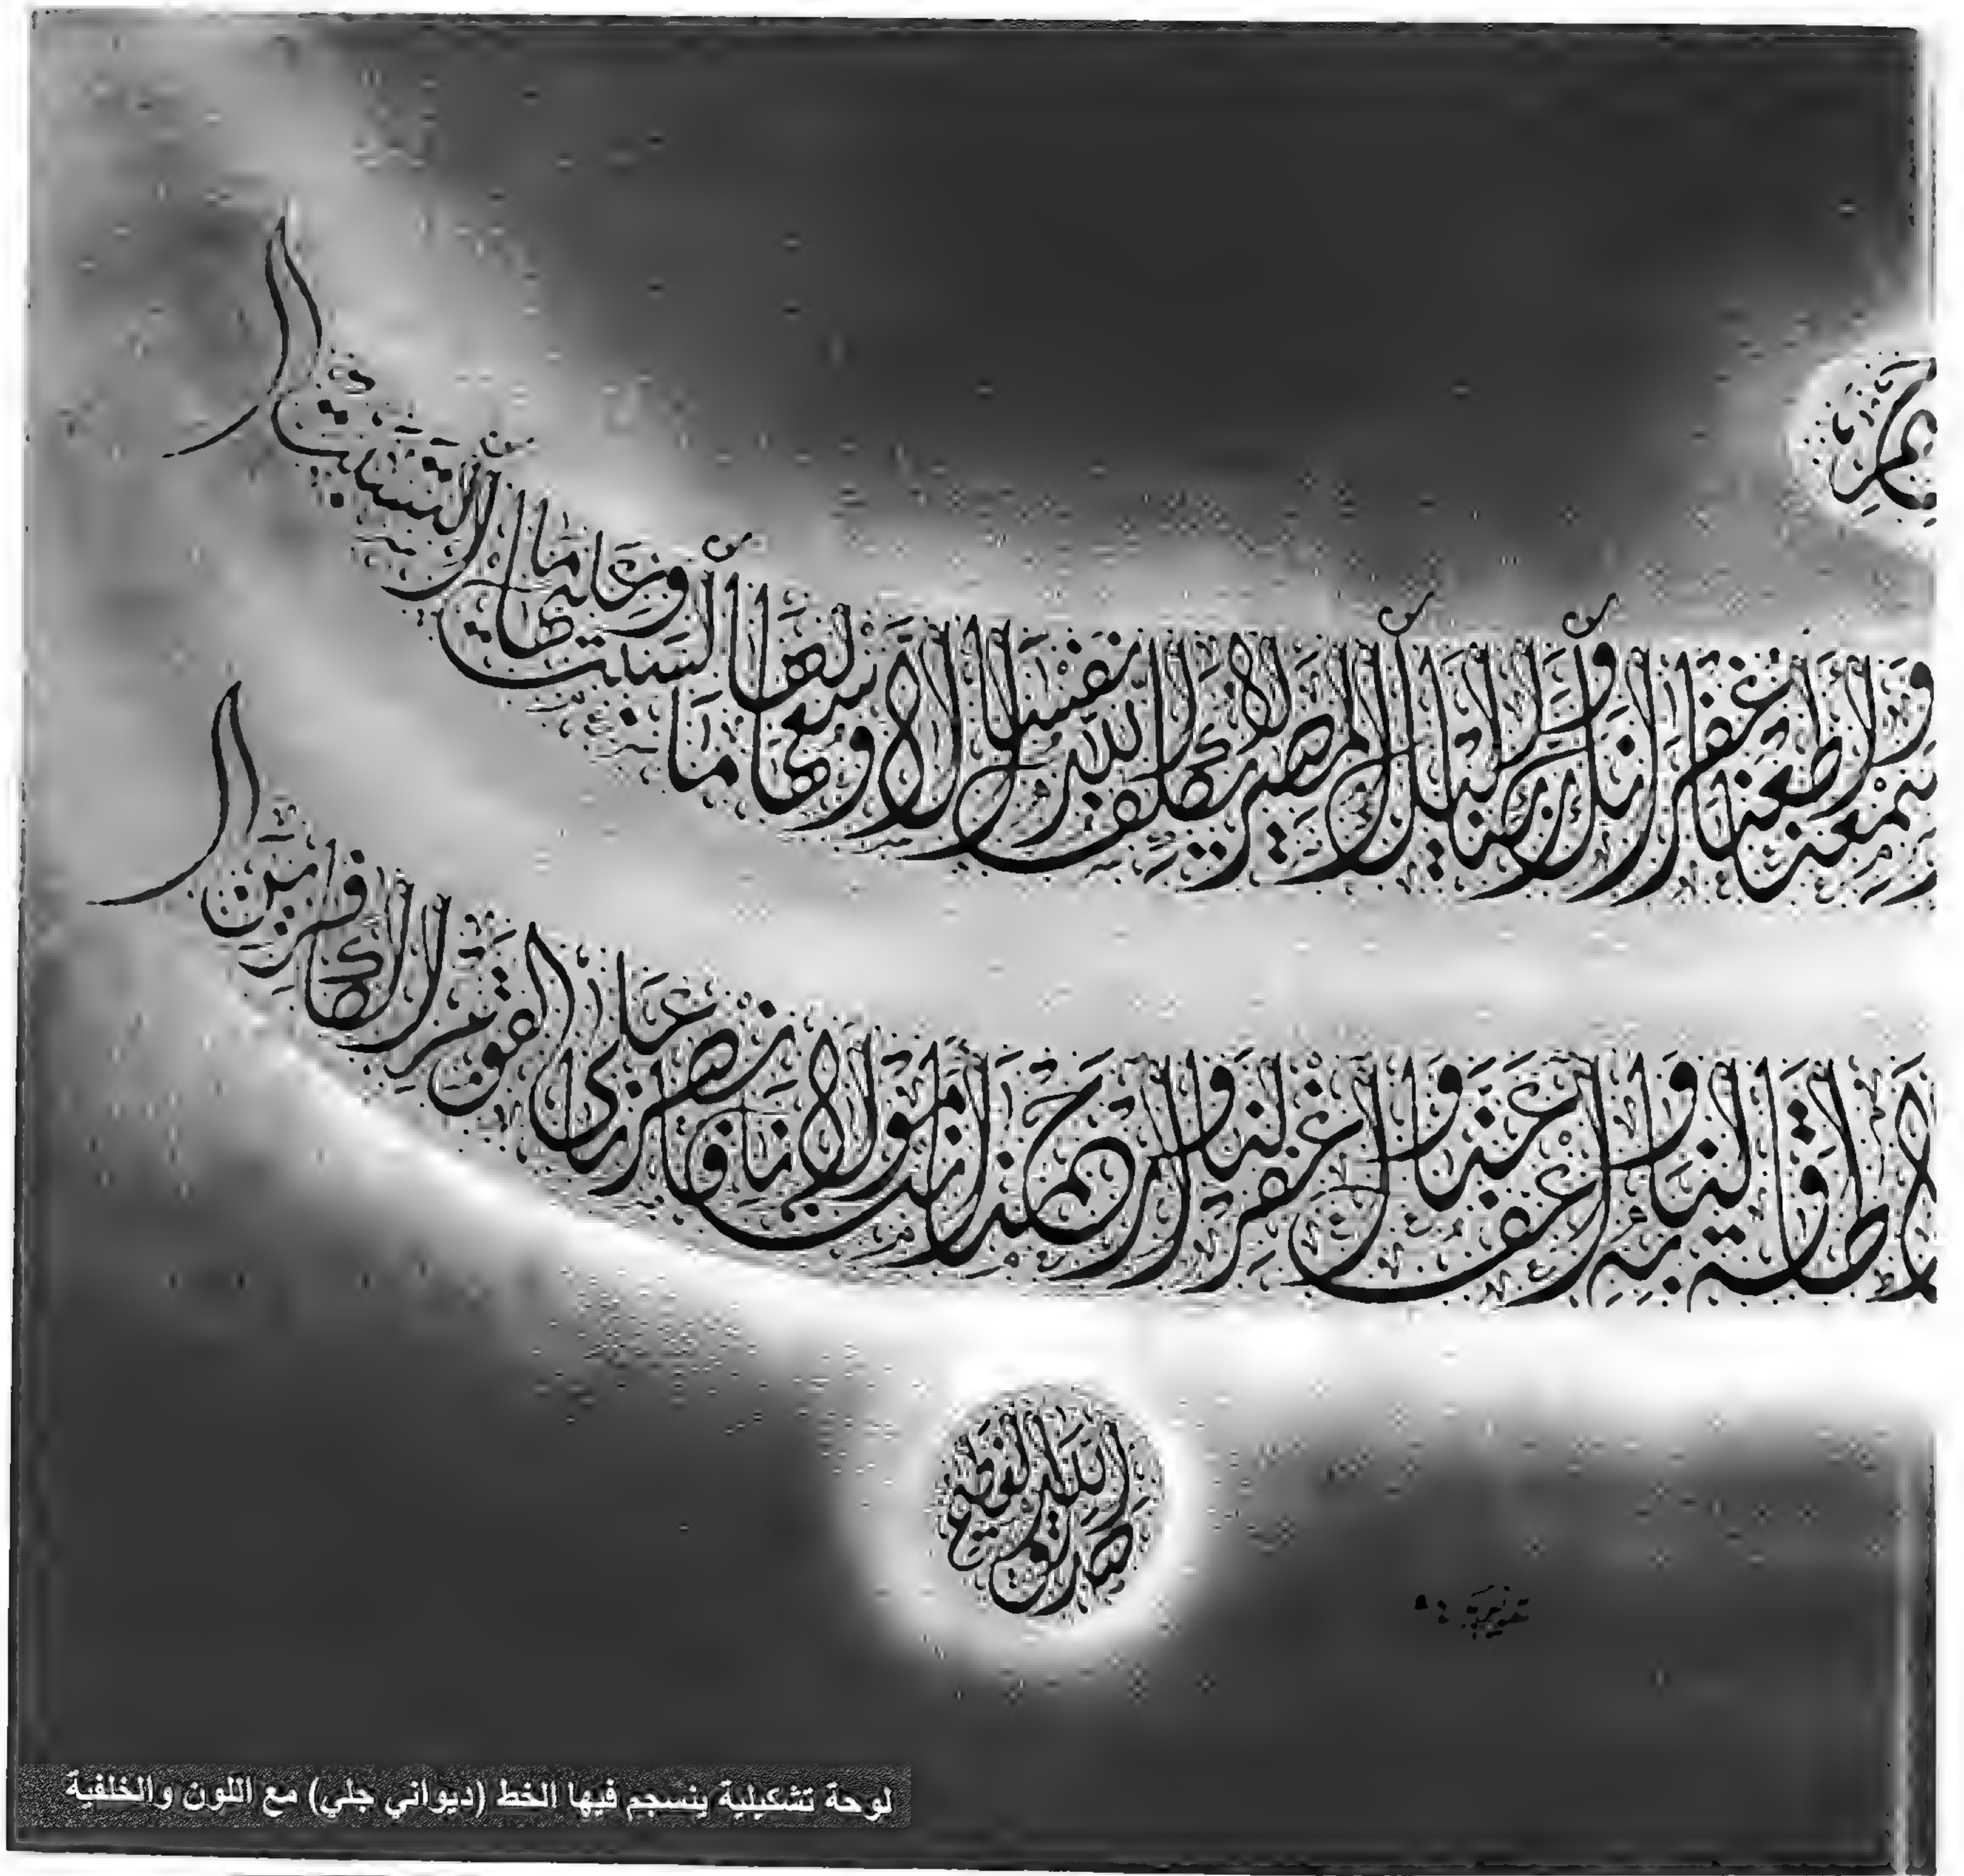 سمعنا وأطعنا غفرانك ربنا وإليك المصير لا يكلف الله نفسا إلا وسعها لها ما كسبت وعليها ما اكتسبت
لا طاقة لنا به واعف عنا واغفر لنا وارحمنا أنت مولانا فانصرنا على القوم الكافرين
صدق الله العظيم
لوحة تشكيلية ينسجم فيها الخط (ديواني جلي) مع اللون والخلفية